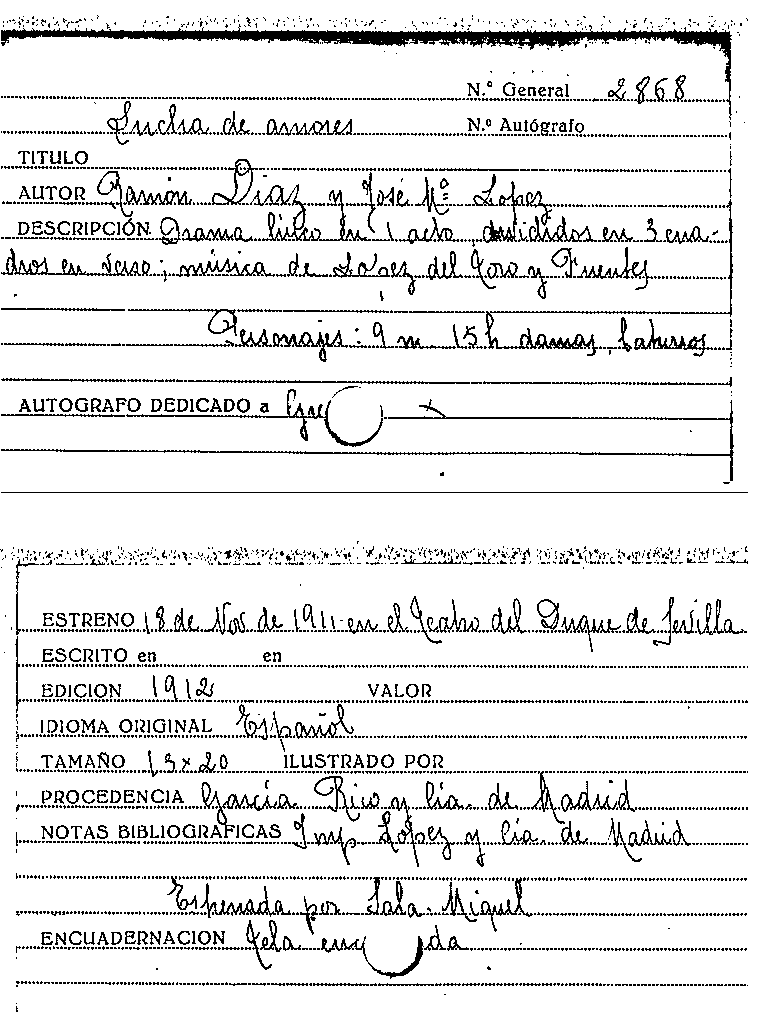 N.º General 2868
Lucha de amores N.º Autógrafo
TITULO
AUTOR Ramón Díaz y José Mª Lopez
DESCRIPCIÓN Drama lírico en 1 acto, divididos en 3 cua-
dros en verso; música de López del Toro y Fuentes
Personajes: 9 m 15 h damas, baturros
AUTOGRAFO DEDICADO a
ESTRENO 18 de Nov de 1911 en el Teatro del Duque de Sevilla
ESCRITO en en
EDICION 1912 VALOR
IDIOMA ORIGINAL Español
TAMAÑO 13 x 20 ILUSTRADO POR
PROCEDENCIA García Rico y Cía. de Madrid
NOTAS BIBLIOGRAFICAS Imp Lopez y Cía. de Madrid
Estrenada por Sala. Miquel
ENCUADERNACION Tela